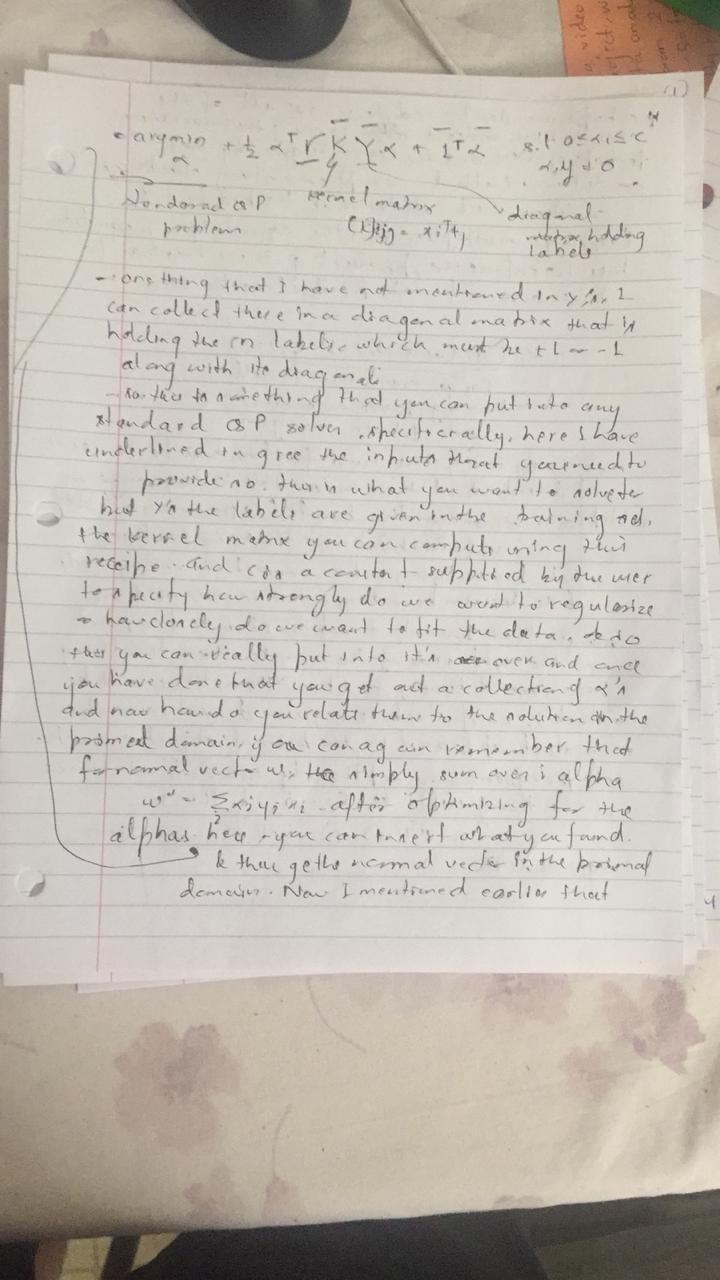 (1)
argmin + 1/2 α^T Y K Y α + 1^T α s.t 0 ≤ αi ≤ c
α α,y = 0
QP kernel matrix diagonal
problem (K)ij = xi^T xj matrix holding
labels
- one thing that I have not mentioned in y is, I
can collect there in a diagonal matrix that is
holding the labels, which must be +1 or -1
along with its diagonal
- so this is something that you can put into any
standard QP solver, specifically, here I have
underlined in gree the inputs that you need to
provide so. this is what you want to solve for
but y's the labels are given in the training set,
the kernel matrix you can compute using this
receibe and C is a constant supplied by the user
to specify how strongly do we want to regularize
or how closely do we want to fit the data. & so
this you can really put into it's over and once
you have done that you get out a collection of α's
and now how do you relate them to the solution in the
primal domain, if you can again remember that
for normal vector w, is simply sum over i alpha
w = Σ αi yi xi after optimizing for the
alphas here you can insert what you found.
& thus get the normal vector in the primal
domain. Now I mentioned earlier that